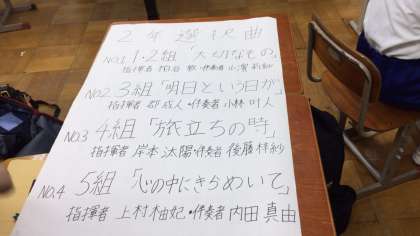 2年選択曲
No.1 1・2組「大切なもの」
指揮者 ・伴奏者
No.2 3組「明日という日が」
指揮者 郡 成人・伴奏者 小林 叶人
No.3 4組「旅立ちの時」
指揮者 岸本 汰陽・伴奏者 後藤 梓紗
No.4 5組「心の中にきらめいて」
指揮者 上村 柚妃・伴奏者 内田 真由